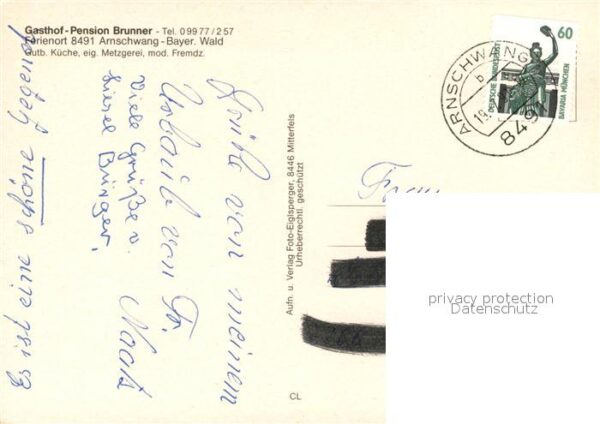 Gasthof-Pension Brunner - Tel. 09977/257
Ferienort 8491 Arnschwang-Bayer. Wald
Gutb. Küche, eig. Metzgerei, mod. Fremdz.
Grüße von meinem
Urlaub von Fr.
Viele Grüße v.
Liesel Bürger!
Es ist eine schöne Gegend
Aufn. u. Verlag Foto-Eiglsperger, 8446 Mitterfels
Urheberrechtl. geschützt
CL
60
DEUTSCHE BUNDESPOST
BAVARIA MÜNCHEN
ARNSCHWANG
b
8491
privacy protection
Datenschutz